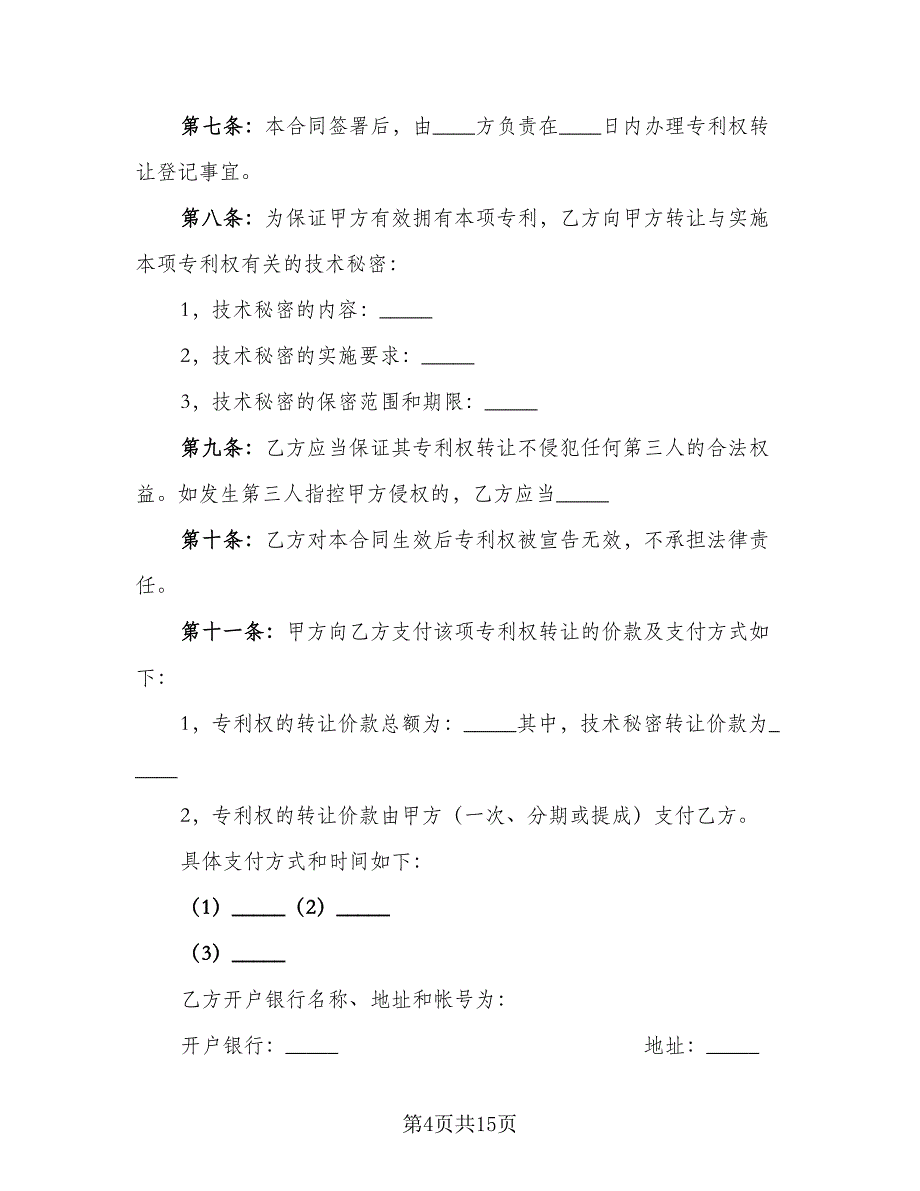 第七条：本合同签署后，由____方负责在____日内办理专利权转
让登记事宜。
第八条：为保证甲方有效拥有本项专利，乙方向甲方转让与实施
本项专利权有关的技术秘密：
1，技术秘密的内容：_____
2，技术秘密的实施要求：_____
3，技术秘密的保密范围和期限：_____
第九条：乙方应当保证其专利权转让不侵犯任何第三人的合法权
益。如发生第三人指控甲方侵权的，乙方应当_____
第十条：乙方对本合同生效后专利权被宣告无效，不承担法律责
任。
第十一条：甲方向乙方支付该项专利权转让的价款及支付方式如
下：
1，专利权的转让价款总额为：_____其中，技术秘密转让价款为_
____
2，专利权的转让价款由甲方（一次、分期或提成）支付乙方。
具体支付方式和时间如下：
（1）_____（2）_____
（3）_____
乙方开户银行名称、地址和帐号为：
开户银行：_____ 地址：_____
第4页共15页